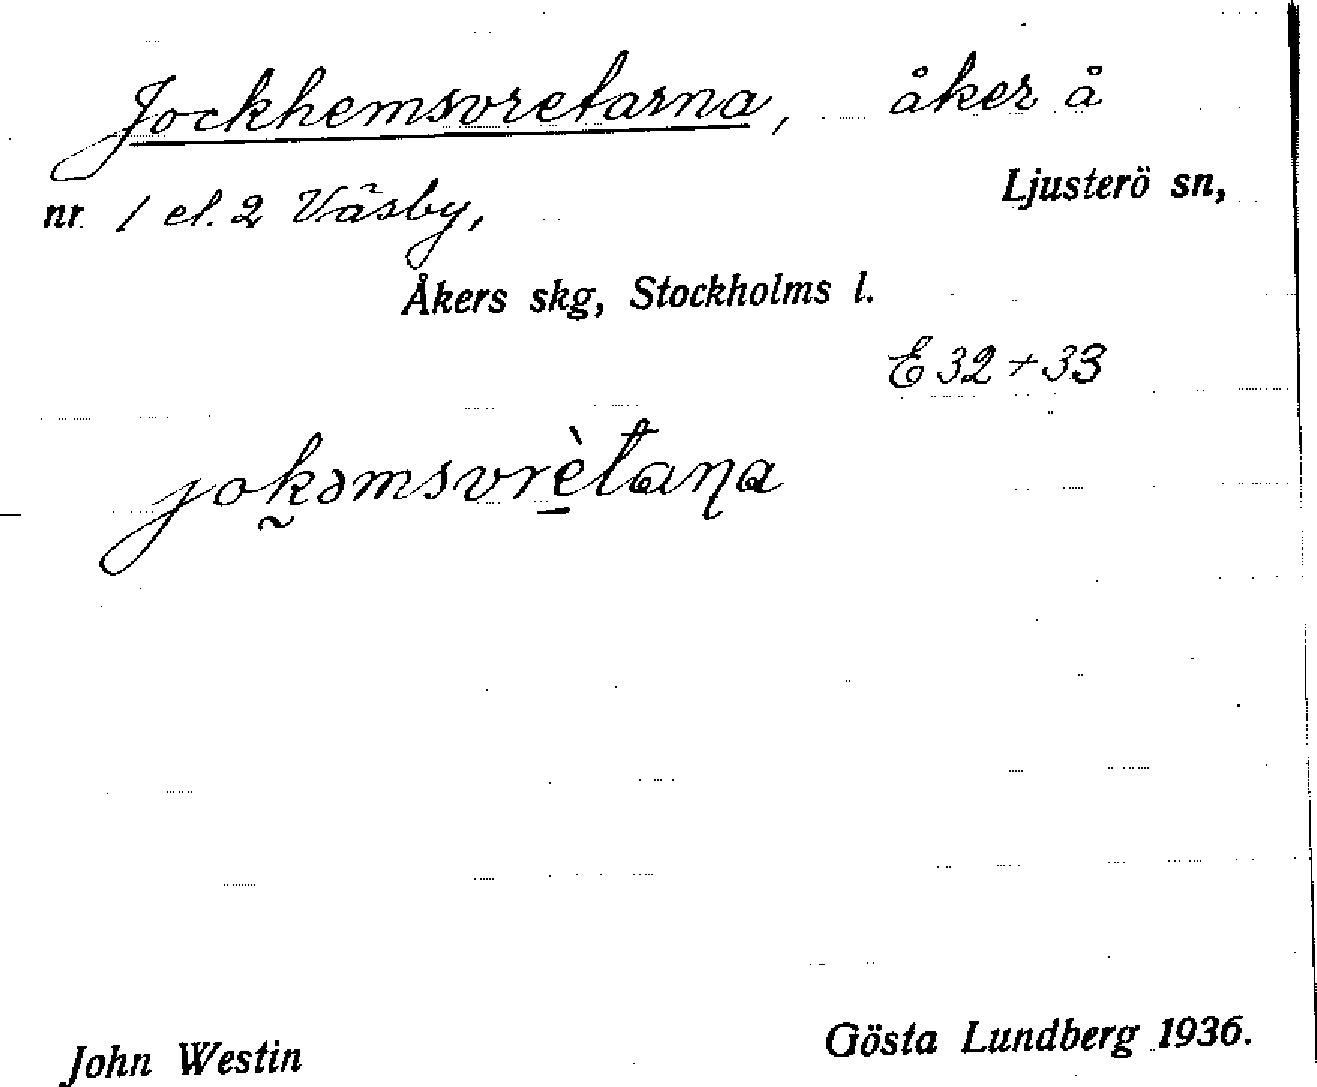 Jockhemsvretarna, åker å
Ljusterö sn,
nr 1 el. 2 Väsby,
Åkers skg, Stockholms l.
E 32 + 33
jok̰əmsvrè̠taɳa
John Westin
Gösta Lundberg 1936.